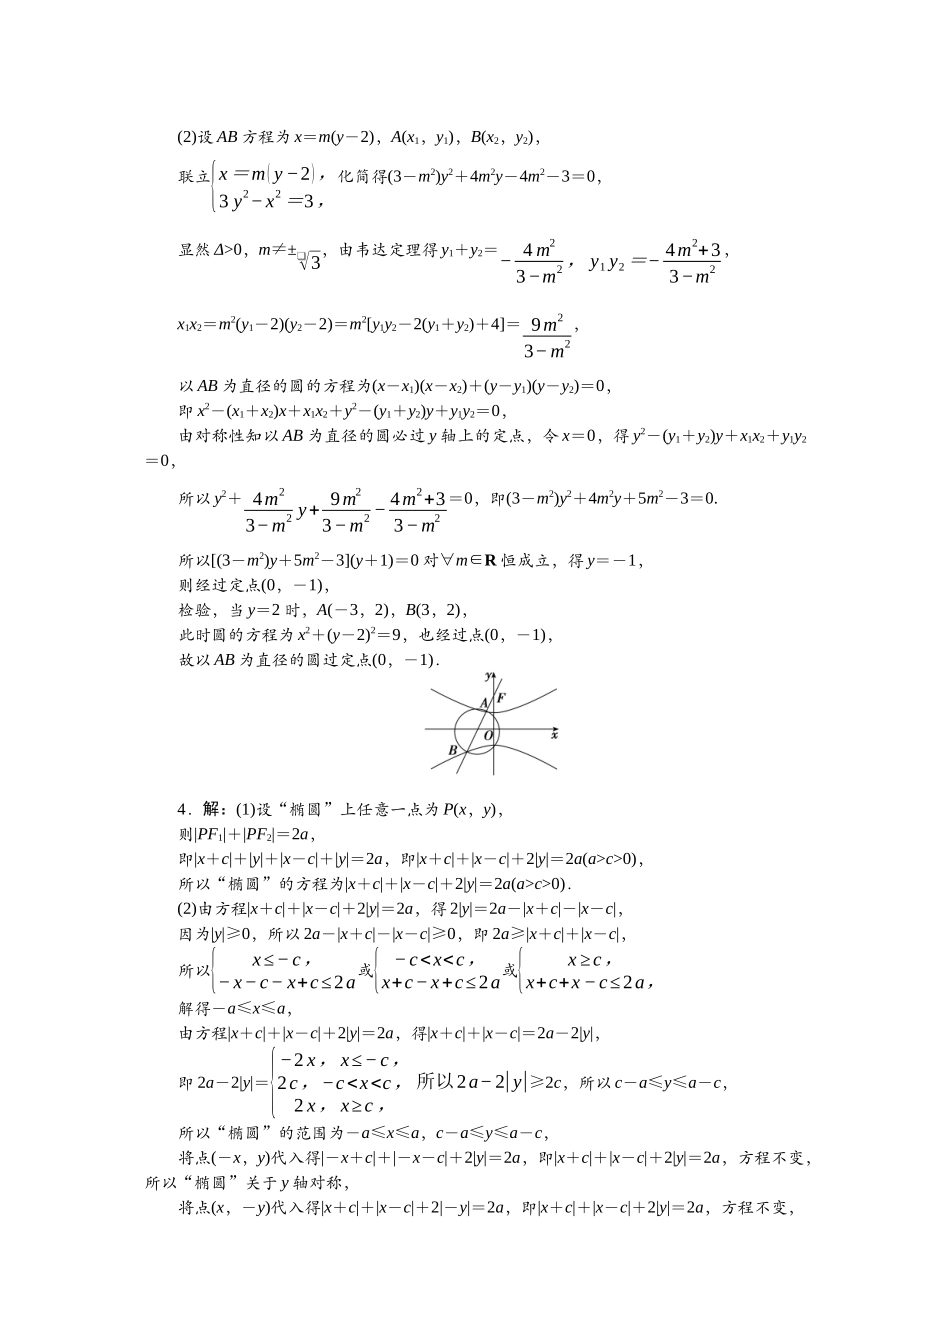 (2)设 AB 方程为 x＝m(y－2)，A(x₁，y₁)，B(x₂，y₂)，
联立{x＝m(y－2)，3y²－x²＝3，化简得(3－m²)y²＋4m²y－4m²－3＝0，
显然 Δ>0，m≠±√3，由韦达定理得 y₁＋y₂＝－4m²/(3－m²)，y₁y₂＝－(4m²+3)/(3－m²)，
x₁x₂＝m²(y₁－2)(y₂－2)＝m²[y₁y₂－2(y₁＋y₂)＋4]＝9m²/(3－m²)，
以 AB 为直径的圆的方程为(x－x₁)(x－x₂)＋(y－y₁)(y－y₂)＝0，
即 x²－(x₁＋x₂)x＋x₁x₂＋y²－(y₁＋y₂)y＋y₁y₂＝0，
由对称性知以 AB 为直径的圆必过 y 轴上的定点，令 x＝0，得 y²－(y₁＋y₂)y＋x₁x₂＋y₁y₂
＝0，
所以 y²＋4m²/(3－m²) y＋9m²/(3－m²)－(4m²+3)/(3－m²)＝0，即(3－m²)y²＋4m²y＋5m²－3＝0.
所以[(3－m²)y＋5m²－3](y＋1)＝0 对∀m∈R 恒成立，得 y＝－1，
则经过定点(0，－1)，
检验，当 y＝2 时，A(－3，2)，B(3，2)，
此时圆的方程为 x²＋(y－2)²＝9，也经过点(0，－1)，
故以 AB 为直径的圆过定点(0，－1)．
y
F
A
O
x
B
4．解：(1)设“椭圆”上任意一点为 P(x，y)，
则|PF₁|＋|PF₂|＝2a，
即|x＋c|＋|y|＋|x－c|＋|y|＝2a，即|x＋c|＋|x－c|＋2|y|＝2a(a>c>0)，
所以“椭圆”的方程为|x＋c|＋|x－c|＋2|y|＝2a(a>c>0)．
(2)由方程|x＋c|＋|x－c|＋2|y|＝2a，得 2|y|＝2a－|x＋c|－|x－c|，
因为|y|≥0，所以 2a－|x＋c|－|x－c|≥0，即 2a≥|x＋c|＋|x－c|，
所以{x≤－c，－x－c－x+c≤2a 或{－c<x<c，x+c－x+c≤2a 或{x≥c，x+c+x－c≤2a，
解得－a≤x≤a，
由方程|x＋c|＋|x－c|＋2|y|＝2a，得|x＋c|＋|x－c|＝2a－2|y|，
即 2a－2|y|＝{－2x，x≤－c，2c，－c<x<c，2x，x≥c，所以 2a－2|y|≥2c，所以 c－a≤y≤a－c，
所以“椭圆”的范围为－a≤x≤a，c－a≤y≤a－c，
将点(－x，y)代入得|－x＋c|＋|－x－c|＋2|y|＝2a，即|x＋c|＋|x－c|＋2|y|＝2a，方程不变，
所以“椭圆”关于 y 轴对称，
将点(x，－y)代入得|x＋c|＋|x－c|＋2|－y|＝2a，即|x＋c|＋|x－c|＋2|y|＝2a，方程不变，